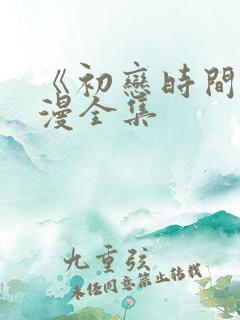 《初戀時間
漫全集
九重弦
未经同意禁止转载